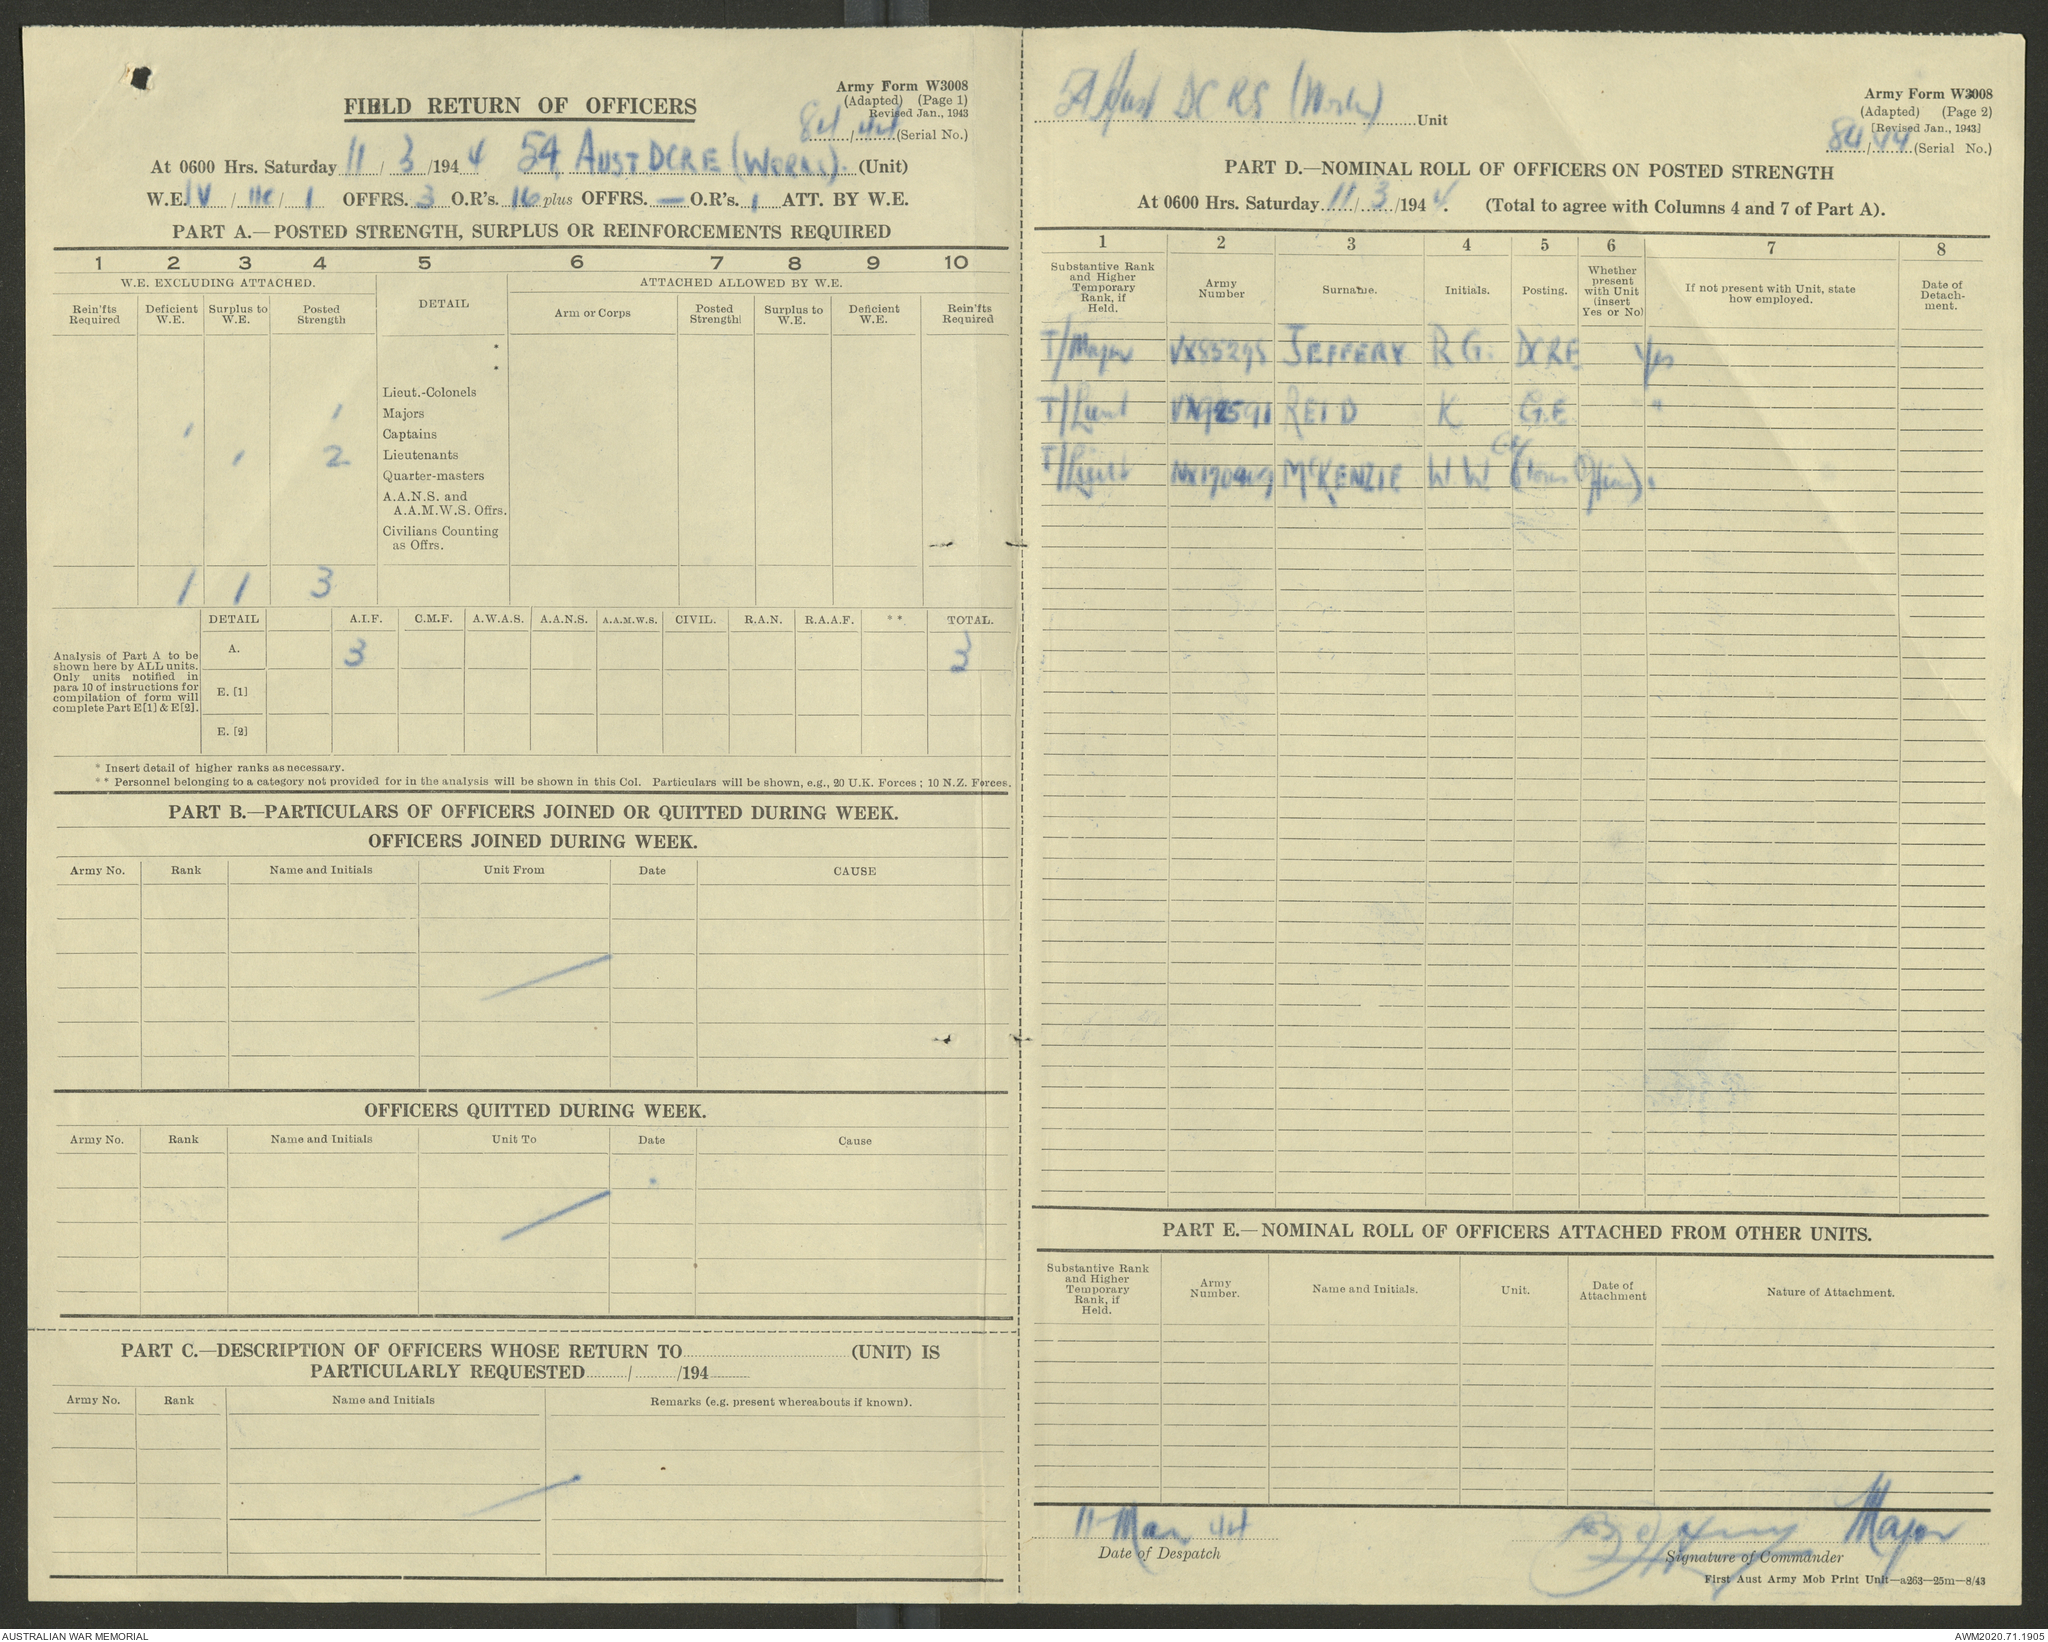 Army Form W3008
(Adapted) (Page 1)
Revised Jan., 1943
FIELD RETURN OF OFFICERS
84/44 (Serial No.)
At 0600 Hrs. Saturday 11/3/1944 54 AUST DCRE (WORKS). (Unit)
W.E. IV/ /1 OFFRS. 3 O.R's. 16 plus OFFRS. — O.R's. 1 ATT. BY W.E.
PART A.—POSTED STRENGTH, SURPLUS OR REINFORCEMENTS REQUIRED
1 2 3 4 5 6 7 8 9 10
W.E. EXCLUDING ATTACHED. DETAIL ATTACHED ALLOWED BY W.E.
Rein'fts Required Deficient W.E. Surplus to W.E. Posted Strength Arm or Corps Posted Strength Surplus to W.E. Deficient W.E. Rein'fts Required
Lieut.-Colonels
1 Majors
1 Captains
1 2 Lieutenants
Quarter-masters
A.A.N.S. and
A.A.M.W.S. Offrs.
Civilians Counting
as Offrs.
1 1 3
DETAIL A.I.F. C.M.F. A.W.A.S. A.A.N.S. A.A.M.W.S. CIVIL. R.A.N. R.A.A.F. ** TOTAL.
Analysis of Part A to be
shown here by ALL units.
Only units notified in
para 10 of instructions for
compilation of form will
complete Part E[1] & E[2].
A. 3 3
E. [1]
E. [2]
* Insert detail of higher ranks as necessary.
** Personnel belonging to a category not provided for in the analysis will be shown in this Col. Particulars will be shown, e.g., 20 U.K. Forces ; 10 N.Z. Forces.
PART B.—PARTICULARS OF OFFICERS JOINED OR QUITTED DURING WEEK.
OFFICERS JOINED DURING WEEK.
Army No. Rank Name and Initials Unit From Date CAUSE
OFFICERS QUITTED DURING WEEK.
Army No. Rank Name and Initials Unit To Date Cause
PART C.—DESCRIPTION OF OFFICERS WHOSE RETURN TO (UNIT) IS
PARTICULARLY REQUESTED / /194
Army No. Rank Name and Initials Remarks (e.g. present whereabouts if known).
54 Aust DCRS (Works) Unit
Army Form W3008
(Adapted) (Page 2)
[Revised Jan., 1943]
84/44 (Serial No.)
PART D.—NOMINAL ROLL OF OFFICERS ON POSTED STRENGTH
At 0600 Hrs. Saturday 11/3/1944. (Total to agree with Columns 4 and 7 of Part A).
1 2 3 4 5 6 7 8
Substantive Rank and Higher Temporary Rank, if Held. Army Number Surname. Initials. Posting. Whether present with Unit (insert Yes or No) If not present with Unit, state how employed. Date of Detachment.
T/Major VX85295 JEFFERY R G. DCRE Yes
T/Lieut REID K G.E "
T/Lieut McKENZIE W W Officer) "
PART E.—NOMINAL ROLL OF OFFICERS ATTACHED FROM OTHER UNITS.
Substantive Rank and Higher Temporary Rank, if Held. Army Number. Name and Initials. Unit. Date of Attachment Nature of Attachment.
11 Mar 44 Major
Date of Despatch Signature of Commander
First Aust Army Mob Print Unit—a263—25m—8/43
AUSTRALIAN WAR MEMORIAL AWM2020.71.1905